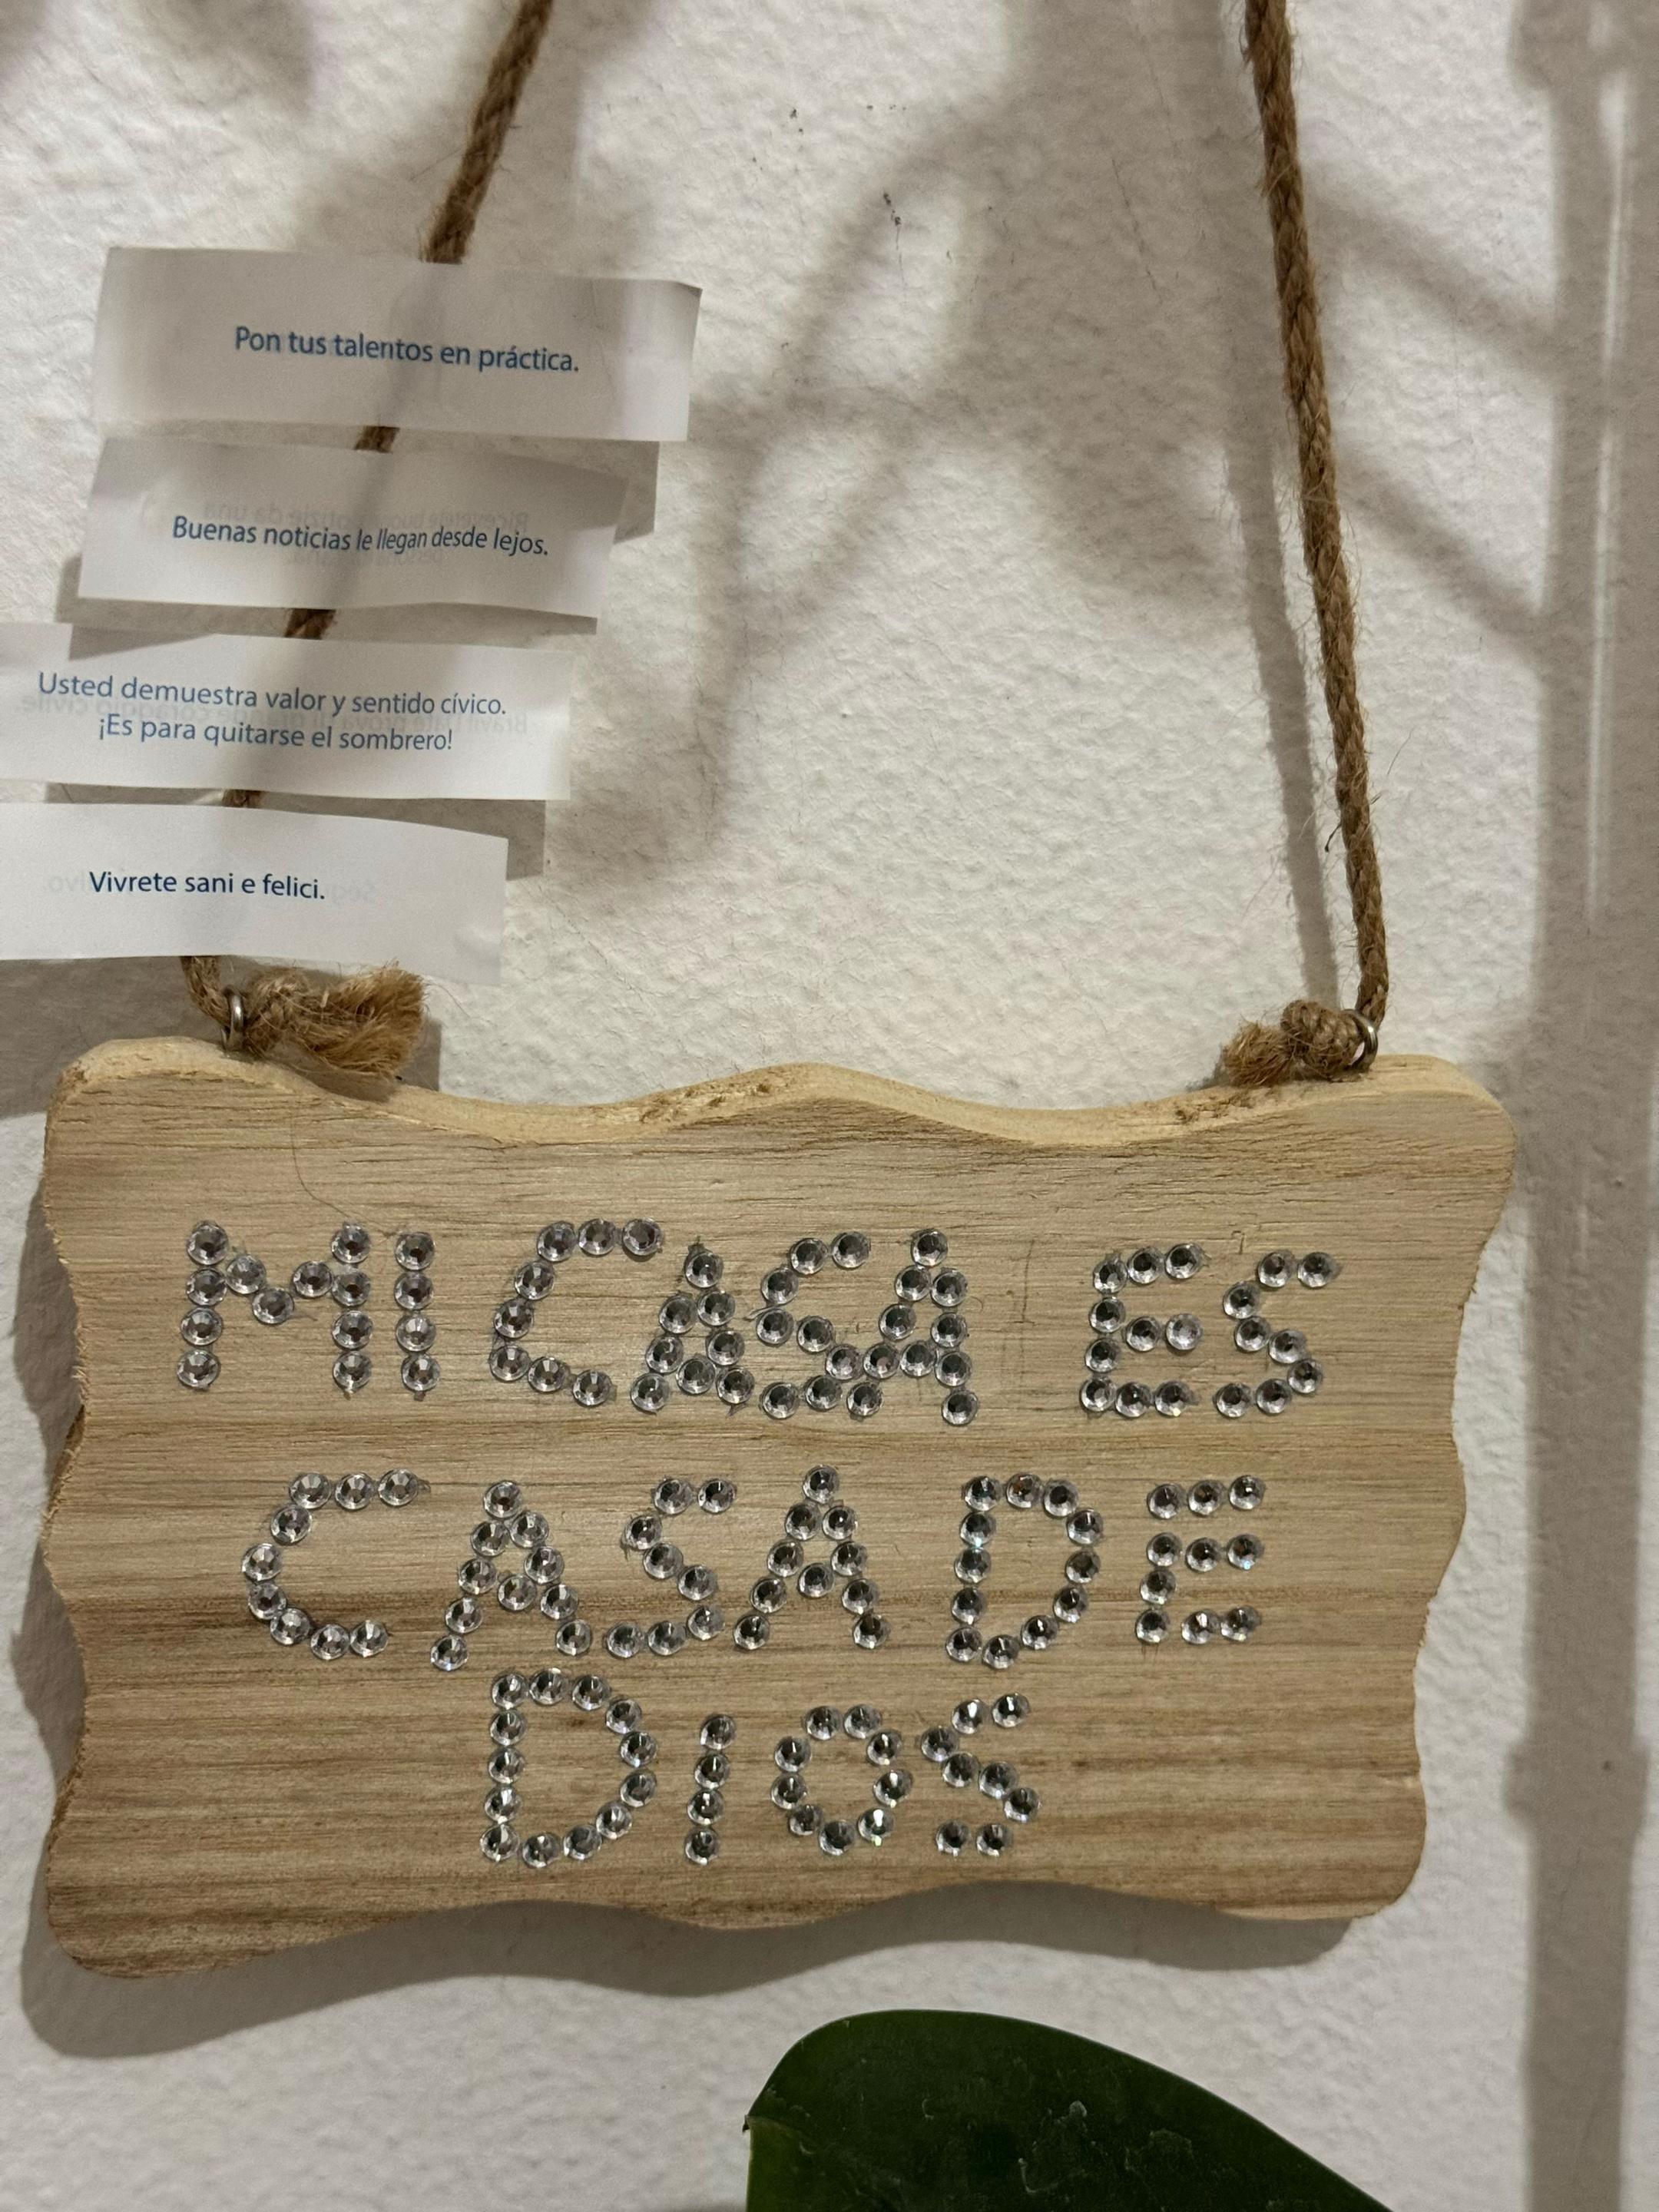 Pon tus talentos en práctica.
Buenas noticias le llegan desde lejos.
Usted demuestra valor y sentido cívico.
¡Es para quitarse el sombrero!
Vivrete sani e felici.
MI CASA ES
CASA DE
DIOS